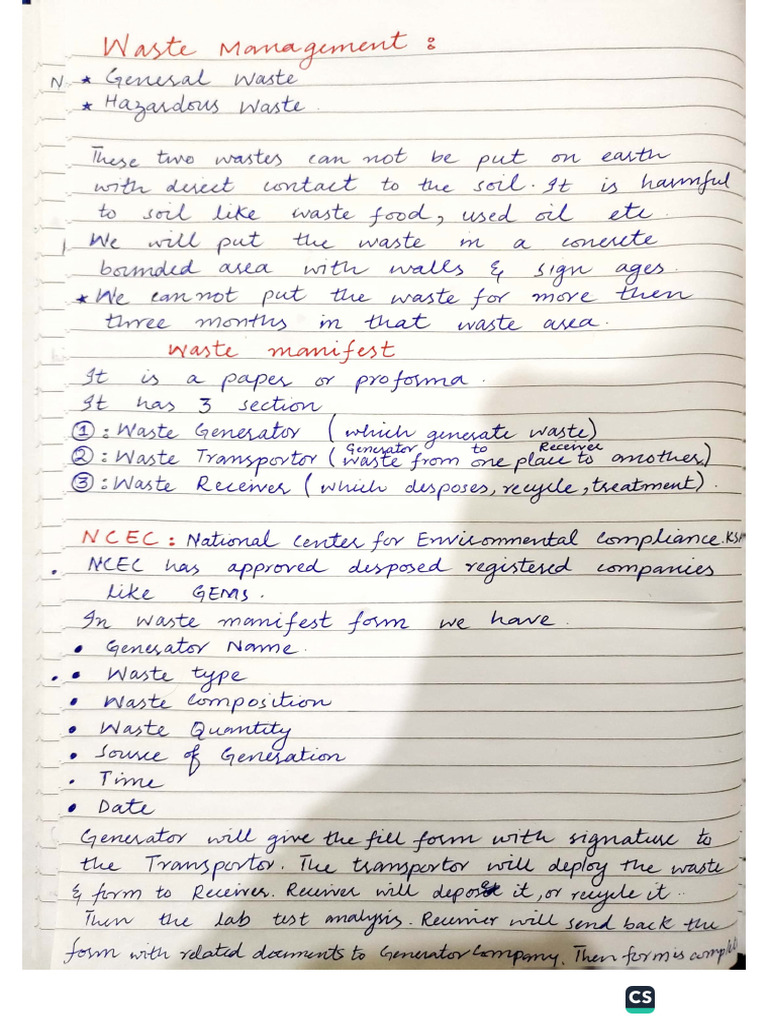 Waste Management :
N. ★ General Waste
★ Hazardous Waste.
These two wastes can not be put on earth
with direct contact to the soil. It is harmful
to soil like waste food, used oil etc.
We will put the waste in a concrete
bounded area with walls & sign ages.
★ We can not put the waste for more then
three months in that waste area.
Waste manifest
It is a paper or proforma.
It has 3 section
①: Waste Generator (which generate waste)
Generator to Receiver
②: Waste Transportor (waste from one place to another)
③: Waste Receiver (which desposes, recycle, treatment).
NCEC: National Center for Environmental Compliance.
• NCEC has approved desposed registered companies
like GEMS.
In waste manifest form we have.
• Generator Name.
• Waste type
• Waste Composition
• Waste Quantity
• Source of Generation
• Time
• Date
Generator will give the fill form with signature to
the Transportor. The transportor will deploy the waste
& form to Receiver. Receiver will it, or recycle it.
Then the lab test analysis. Receiver will send back the
form with related documents to Generator Company. Then form is
CS